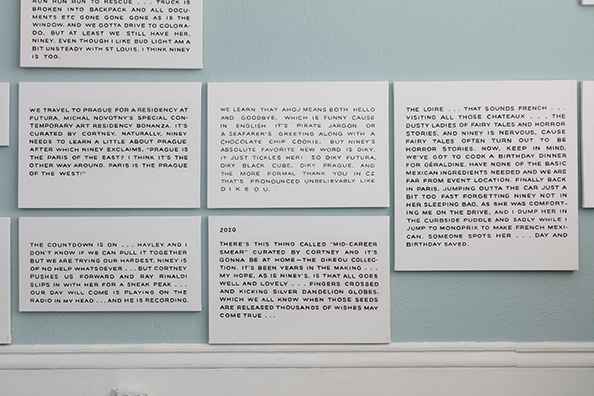 RUN RUN RUN TO RESCUE . . . TRUCK IS
BROKEN INTO BACKPACK AND ALL DOCU-
MENTS ETC GONE GONE GONE AS IS THE
WINDOW. AND WE GOTTA DRIVE TO COLORA-
DO. BUT AT LEAST WE STILL HAVE HER.
NINEY. EVEN THOUGH I LIKE BUD LIGHT AM A
BIT UNSTEADY WITH ST LOUIS. I THINK NINEY
IS TOO.
WE TRAVEL TO PRAGUE FOR A RESIDENCY AT
FUTURA, MICHAL NOVOTNY'S SPECIAL CON-
TEMPORARY ART RESIDENCY BONANZA. IT'S
CURATED BY CORTNEY. NATURALLY, NINEY
NEEDS TO LEARN A LITTLE ABOUT PRAGUE
AFTER WHICH NINEY EXCLAIMS, "PRAGUE IS
THE PARIS OF THE EAST? I THINK IT'S THE
OTHER WAY AROUND. PARIS IS THE PRAGUE
OF THE WEST!"
WE LEARN THAT AHOJ MEANS BOTH HELLO
AND GOODBYE, WHICH IS FUNNY CAUSE
IN ENGLISH IT'S PIRATE JARGON OR
A SEAFARER'S GREETING ALONG WITH A
CHOCOLATE CHIP COOKIE. BUT NINEY'S
ABSOLUTE FAVORITE NEW WORD IS DIKY.
IT JUST TICKLES HER! SO DIKY FUTURA,
DIKY BLACK CUBE, DIKY PRAGUE, AND
THE MORE FORMAL THANK YOU IN CZ
THAT'S PRONOUNCED UNBELIEVABLY LIKE
D I K E O U.
THE LOIRE . . . THAT SOUNDS FRENCH . . .
VISITING ALL THOSE CHATEAUX . . . THE
DUSTY LADIES OF FAIRY TALES AND HORROR
STORIES, AND NINEY IS NERVOUS, CAUSE
FAIRY TALES OFTEN TURN OUT TO BE
HORROR STORIES. NOW, KEEP IN MIND,
WE'VE GOT TO COOK A BIRTHDAY DINNER
FOR GÉRALDINE, HAVE NONE OF THE BASIC
MEXICAN INGREDIENTS NEEDED AND WE ARE
FAR FROM EVENT LOCATION. FINALLY BACK
IN PARIS. JUMPING OUTTA THE CAR JUST A
BIT TOO FAST FORGETTING NINEY NOT IN
HER SLEEPING BAG, AS SHE WAS COMFORT-
ING ME ON THE DRIVE, AND I DUMP HER IN
THE CURBSIDE PUDDLE AND SADLY WHILE I
JUMP TO MONOPRIX TO MAKE FRENCH MEXI-
CAN. SOMEONE SPOTS HER . . . DAY AND
BIRTHDAY SAVED.
THE COUNTDOWN IS ON . . . HAYLEY AND I
DON'T KNOW IF WE CAN PULL IT TOGETHER
BUT WE ARE TRYING OUR HARDEST. NINEY IS
OF NO HELP WHATSOEVER . . . BUT CORTNEY
PUSHES US FORWARD AND RAY RINALDI
SLIPS IN WITH HER FOR A SNEAK PEAK . . .
OUR DAY WILL COME IS PLAYING ON THE
RADIO IN MY HEAD . . . AND HE IS RECORDING.
2020
THERE'S THIS THING CALLED "MID-CAREER
SMEAR" CURATED BY CORTNEY AND IT'S
GONNA BE AT HOME—THE DIKEOU COLLEC-
TION. IT'S BEEN YEARS IN THE MAKING . . .
MY HOPE, AS IS NINEY'S, IS THAT ALL GOES
WELL AND LOVELY . . . FINGERS CROSSED
AND KICKING SILVER DANDELION GLOBES,
WHICH WE ALL KNOW WHEN THOSE SEEDS
ARE RELEASED THOUSANDS OF WISHES MAY
COME TRUE . . .